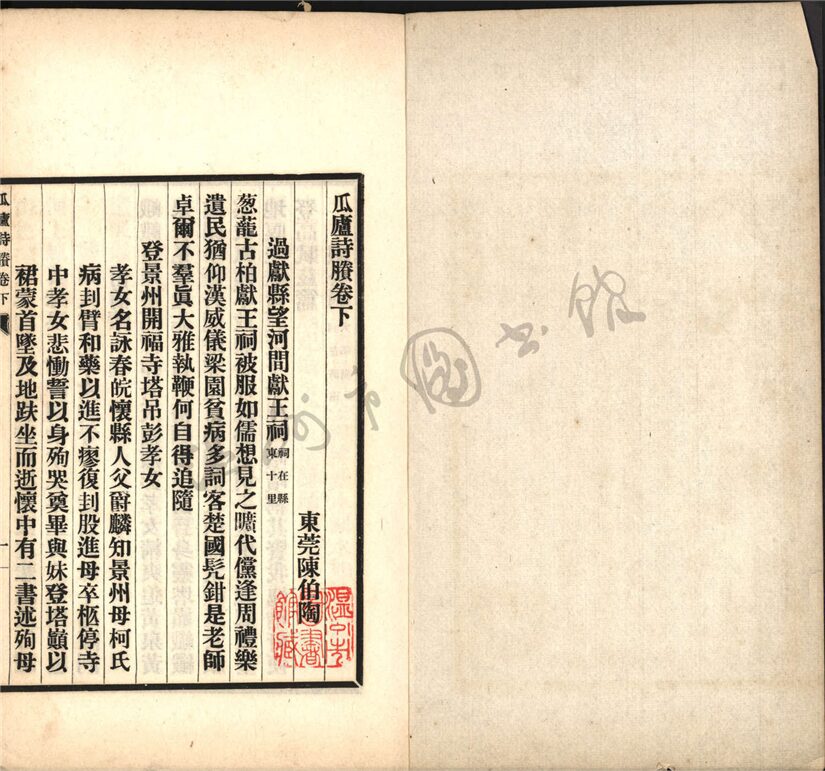 瓜廬詩賸卷下
東莞陳伯陶
過獻縣望河間獻王祠祠在縣東十里
葱蘢古柏獻王祠被服如儒想見之曠代儻逢周禮樂
遺民猶仰漢威儀梁園貧病多詞客楚國髡鉗是老師
卓爾不羣眞大雅執鞭何自得追隨
登景州開福寺塔吊彭孝女
孝女名詠春皖懷縣人父爵麟知景州母柯氏
病刲臂和藥以進不瘳復刲股進母卒柩停寺
中孝女悲慟誓以身殉哭奠畢與妹登塔巔以
裙蒙首墜及地趺坐而逝懷中有二書述殉母
瓜廬詩賸卷下
一
溫州
圖書
館藏
溫州市圖書館